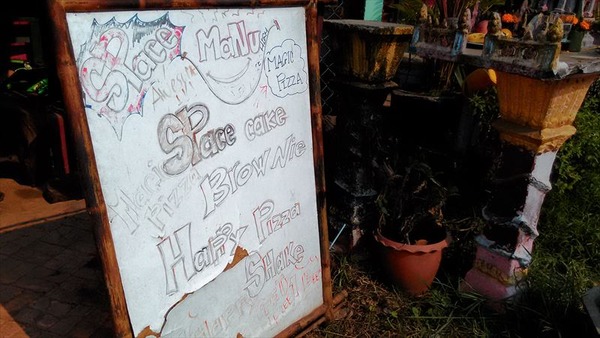 SPace MaNu
MAGIC PIZZA
SPace cake
BrowNie
Magic Pizza
HaPPy Pizza
SHake